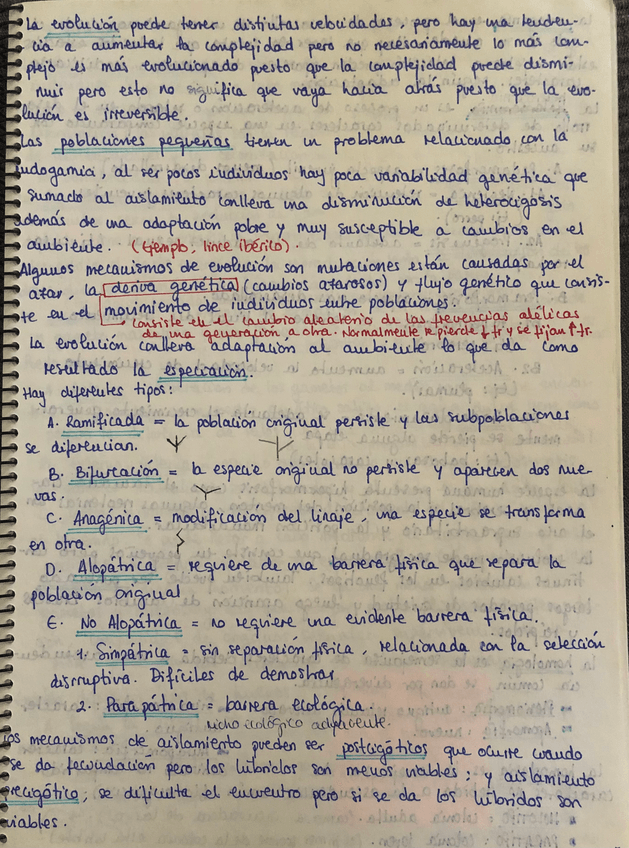 La evolución puede tener distintas velocidades, pero hay una tenden-
cia a aumentar la complejidad pero no necesariamente lo más com-
plejo es más evolucionado puesto que la complejidad puede dismi-
nuir pero esto no significa que vaya hacia atrás puesto que la evo-
lución es irreversible.
Las poblaciones pequeñas tienen un problema relacionado con la
endogamia, al ser pocos individuos hay poca variabilidad genética que
sumado al aislamiento conlleva una disminución de heterocigosis
además de una adaptación pobre y muy susceptible a cambios en el
ambiente. (Ejemplo: lince ibérico).
Algunos mecanismos de evolución son mutaciones están causadas por el
azar, la deriva genética (cambios azarosos) y flujo genético que consis-
te en el movimiento de individuos entre poblaciones.
· Consiste en el cambio aleatorio de las frecuencias alélicas
de una generación a otra. Normalmente se pierde ↓ fr y se fijan ↑ fr.
La evolución conlleva adaptación al ambiente lo que da como
resultado la especiación.
Hay diferentes tipos:
A. Ramificada = la población original persiste y las subpoblaciones
se diferencian.
B. Bifurcación = la especie original no persiste y aparecen dos nue-
vas.
C. Anagénica = modificación del linaje, una especie se transforma
en otra.
D. Alopátrica = requiere de una barrera física que separa la
población original
E. No Alopátrica = no requiere una evidente barrera física.
1. Simpátrica = sin separación física, relacionada con la selección
disruptiva. Difíciles de demostrar
2. Parapátrica = barrera ecológica.
nicho ecológico adyacente.
Los mecanismos de aislamiento pueden ser postcigóticos que ocurre cuando
se da fecundación pero los híbridos son menos viables; y aislamiento
precigótico, se dificulta el encuentro pero si se da los híbridos son
viables.